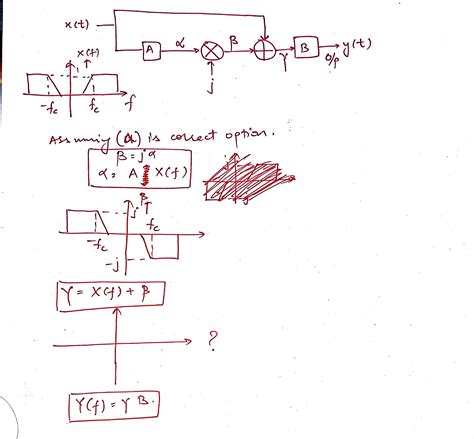 x(t)
A
α
β
j
γ
B
y(t)
O/p
X(f)
1
-fc
fc
f
Assuming (a) is correct option.
β = jα
α = A X(f)
β
j
fc
-fc
-j
γ = X(f) + β
?
Y(f) = γ B.